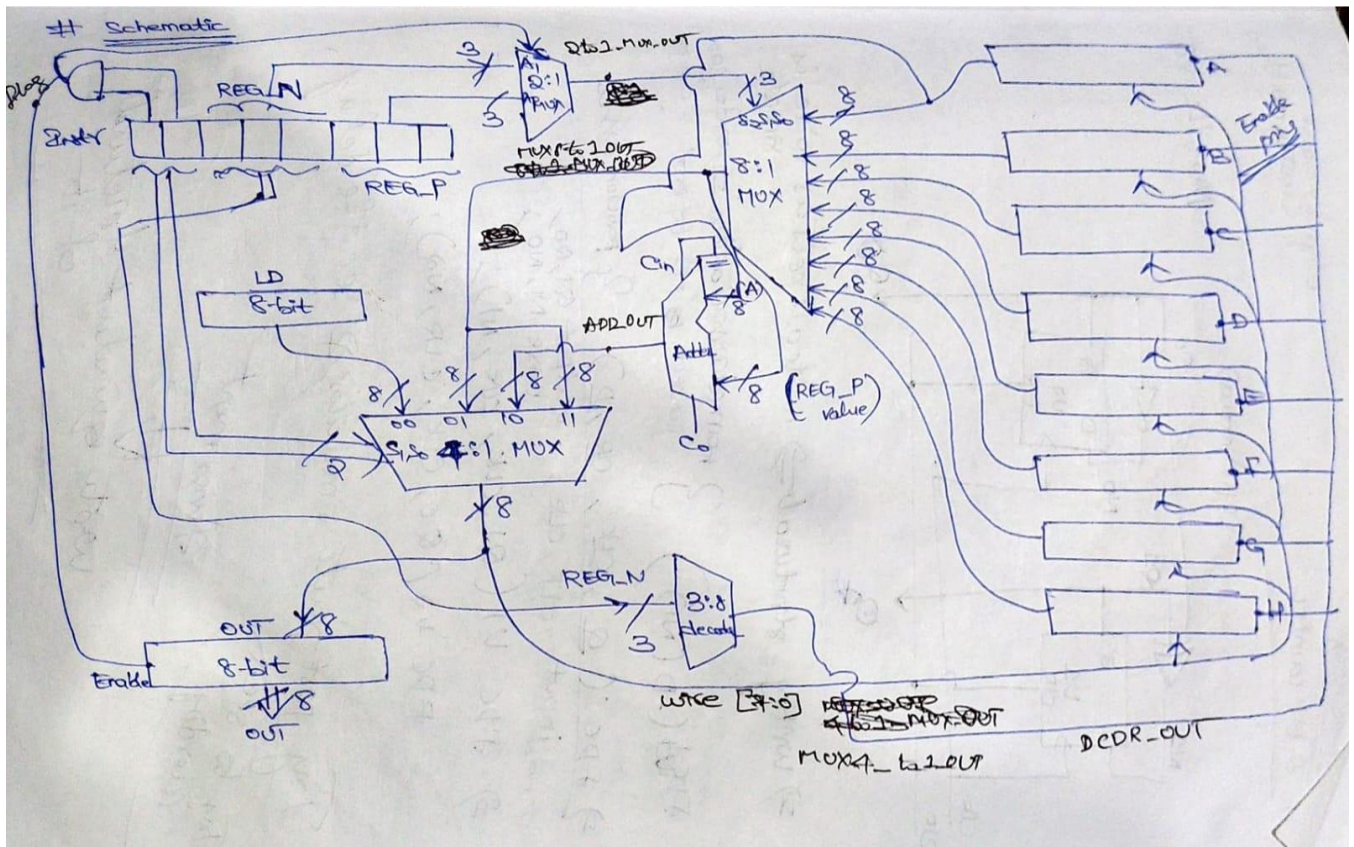 # Schematic
flag
REG_N
3
A1
2:1
MUX
3
2to1_MUX_OUT
Instr
REG_P
MUX8-to1OUT
3
S2S1S0
8:1
MUX
8
8
8
8
8
8
8
8
A
B
C
D
E
F
G
H
Enable
pins
LD
8-bit
Cin
(A)
8
ADD_OUT
Adder
8
(REG_P
value)
Co
8
8
8
8
00 01 10 11
S1S0 4:1 MUX
2
8
REG_N
3
3:8
decoder
OUT
8
8-bit
Enable
8
OUT
wire [7:0]
MUX4_to1_OUT
DCDR_OUT